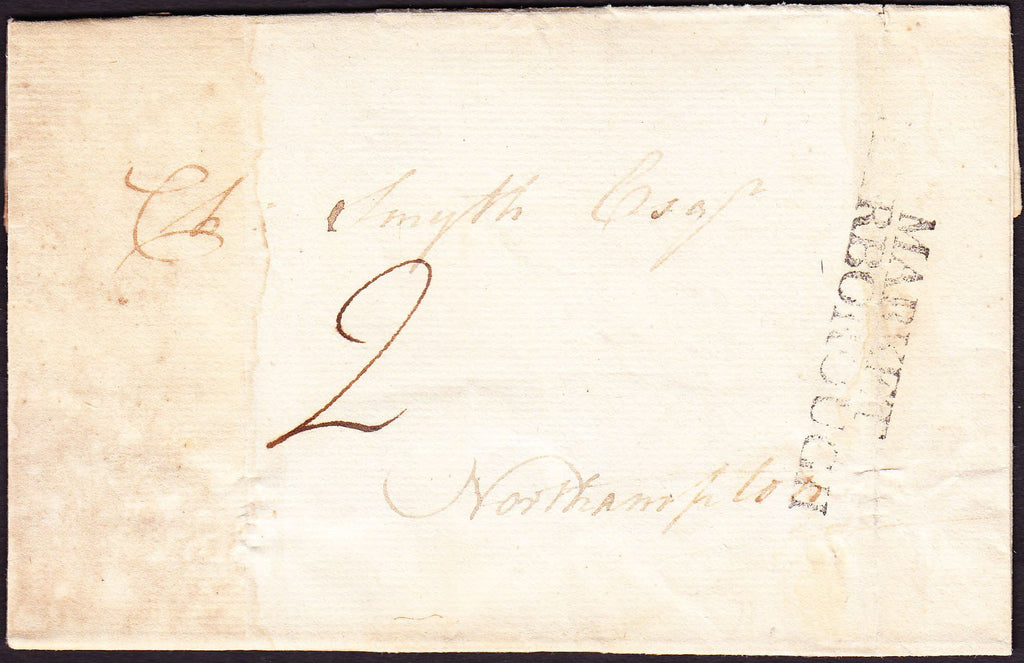 Ch: Smyth Esqr
2
Northampton
MARKET
RBOROUGH